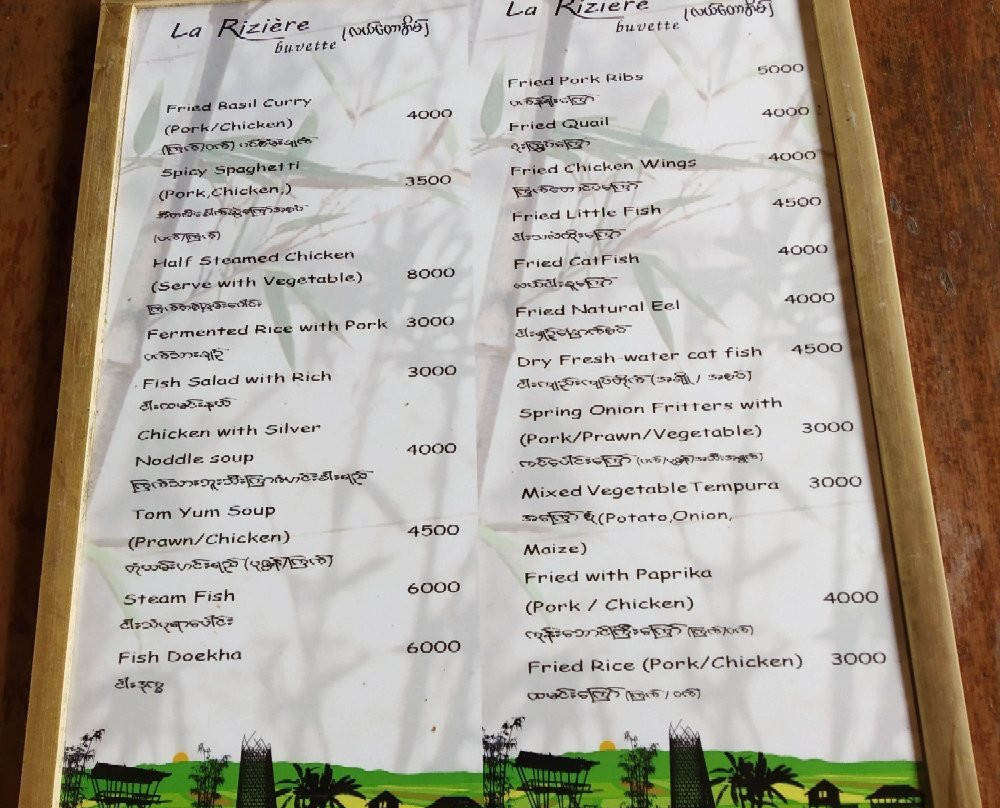 La Rizière
buvette (လယ်တောအိမ်)
Fried Basil Curry
(Pork/Chicken) 4000
(ကြက်/ဝက်) ပင်စိမ်းချက်
Spicy Spaghetti
(Pork,Chicken,) 3500
အီတလီခေါက်ဆွဲကြော်အစပ်
(ဝက်/ကြက်)
Half Steamed Chicken
(Serve with Vegetable) 8000
Fermented Rice with Pork 3000
ဝက်သားချဉ်
Fish Salad with Rich 3000
ငါးထမင်းနယ်
Chicken with Silver
Noddle soup 4000
Tom Yum Soup
(Prawn/Chicken) 4500
တုံယမ်းဟင်းရည် (ပုဇွန်/ကြက်)
Steam Fish 6000
ငါးသံပုရာပေါင်း
Fish Doekha 6000
La Rizière
buvette (လယ်တောအိမ်)
Fried Pork Ribs 5000
ဝက်နံရိုးကြော်
Fried Quail 4000
ငုံးကြော်
Fried Chicken Wings 4000
ကြက်တောင်ပံကြော်
Fried Little Fish 4500
Fried CatFish 4000
ထမ်းငါးခူကြော်
Fried Natural Eel 4000
ငါးရှဉ့်ခြောက်စပ်
Dry Fresh-water cat fish 4500
Spring Onion Fritters with
(Pork/Prawn/Vegetable) 3000
Mixed Vegetable Tempura 3000
အကြော်စုံ (Potato,Onion,
Maize)
Fried with Paprika
(Pork / Chicken) 4000
Fried Rice (Pork/Chicken) 3000
ထမင်းကြော် (ကြက် / ဝက်)